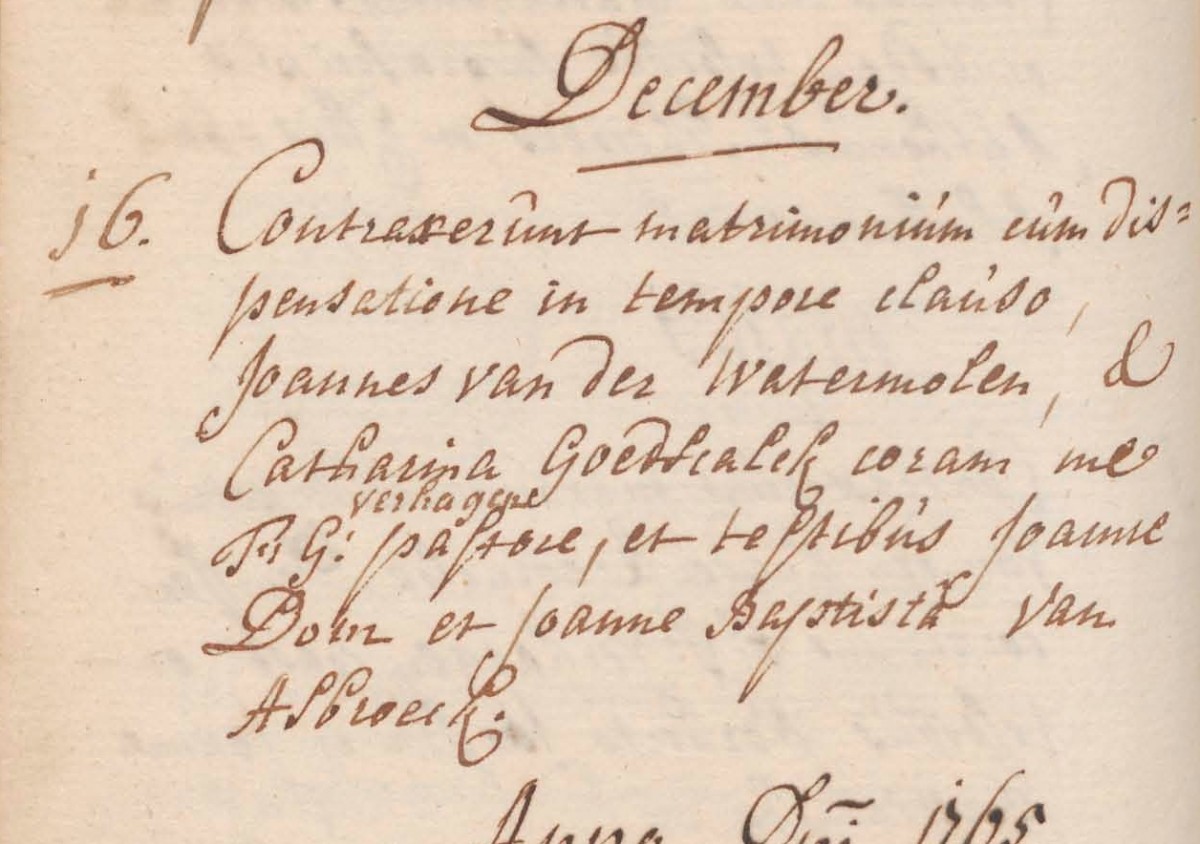 December.
16. Contraxerunt matrimonium cum dis=
pensatione in tempore clauso,
Joannes van der Watermolen, &
Catharina Goedthalck coram me
verhagene
Fr G: pastore, et testibus Joanne
Dom et Joanne Baptistâ van
Asbroeck.
Anno Dni 1765